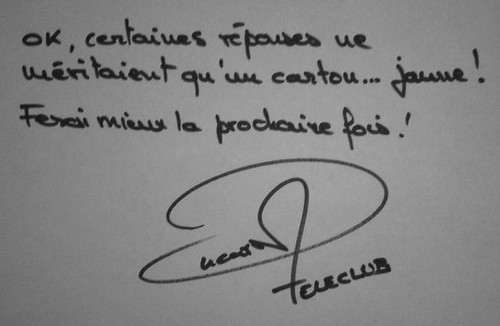 OK, certaines réponses ne
méritaient qu'un carton... jaune !
Ferai mieux la prochaine fois !
TELECLUB